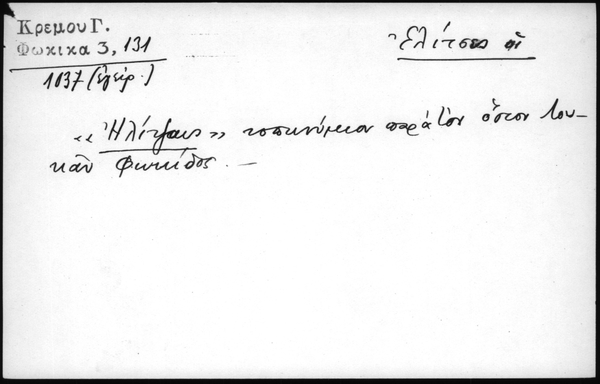 Κρεμου Γ.
Φωκικα 3, 131
1037 (ἐγείρ.)
Ἐλίτσας αἱ
«Ἠλίτζαις» τοπωνύμιον παρὰ τὸν ὅσιον Λου-
κᾶν Φωκίδος. —